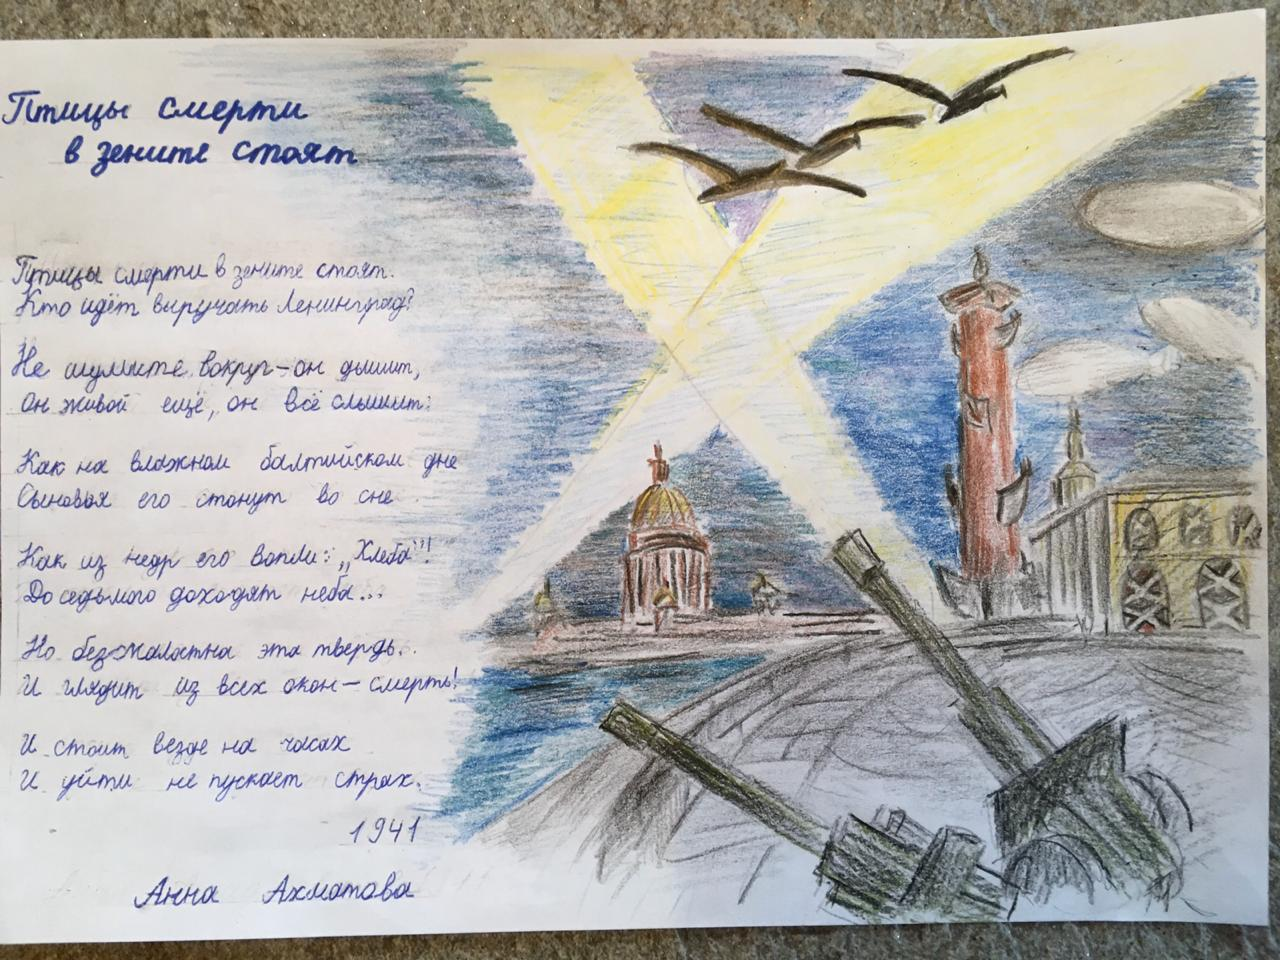 Птицы смерти
в зените стоят
Птицы смерти в зените стоят.
Кто идёт выручать Ленинград?
Не шумите вокруг – он дышит,
Он живой ещё, он всё слышит:
Как на влажном балтийском дне
Сыновья его стонут во сне
Как из недр его вопли: „Хлеба"!!
До седьмого доходят неба...
Но безжалостна эта твердь.
И глядит из всех окон – смерть!
И стоит везде на часах
И уйти не пускает страх.
1941
Анна Ахматова